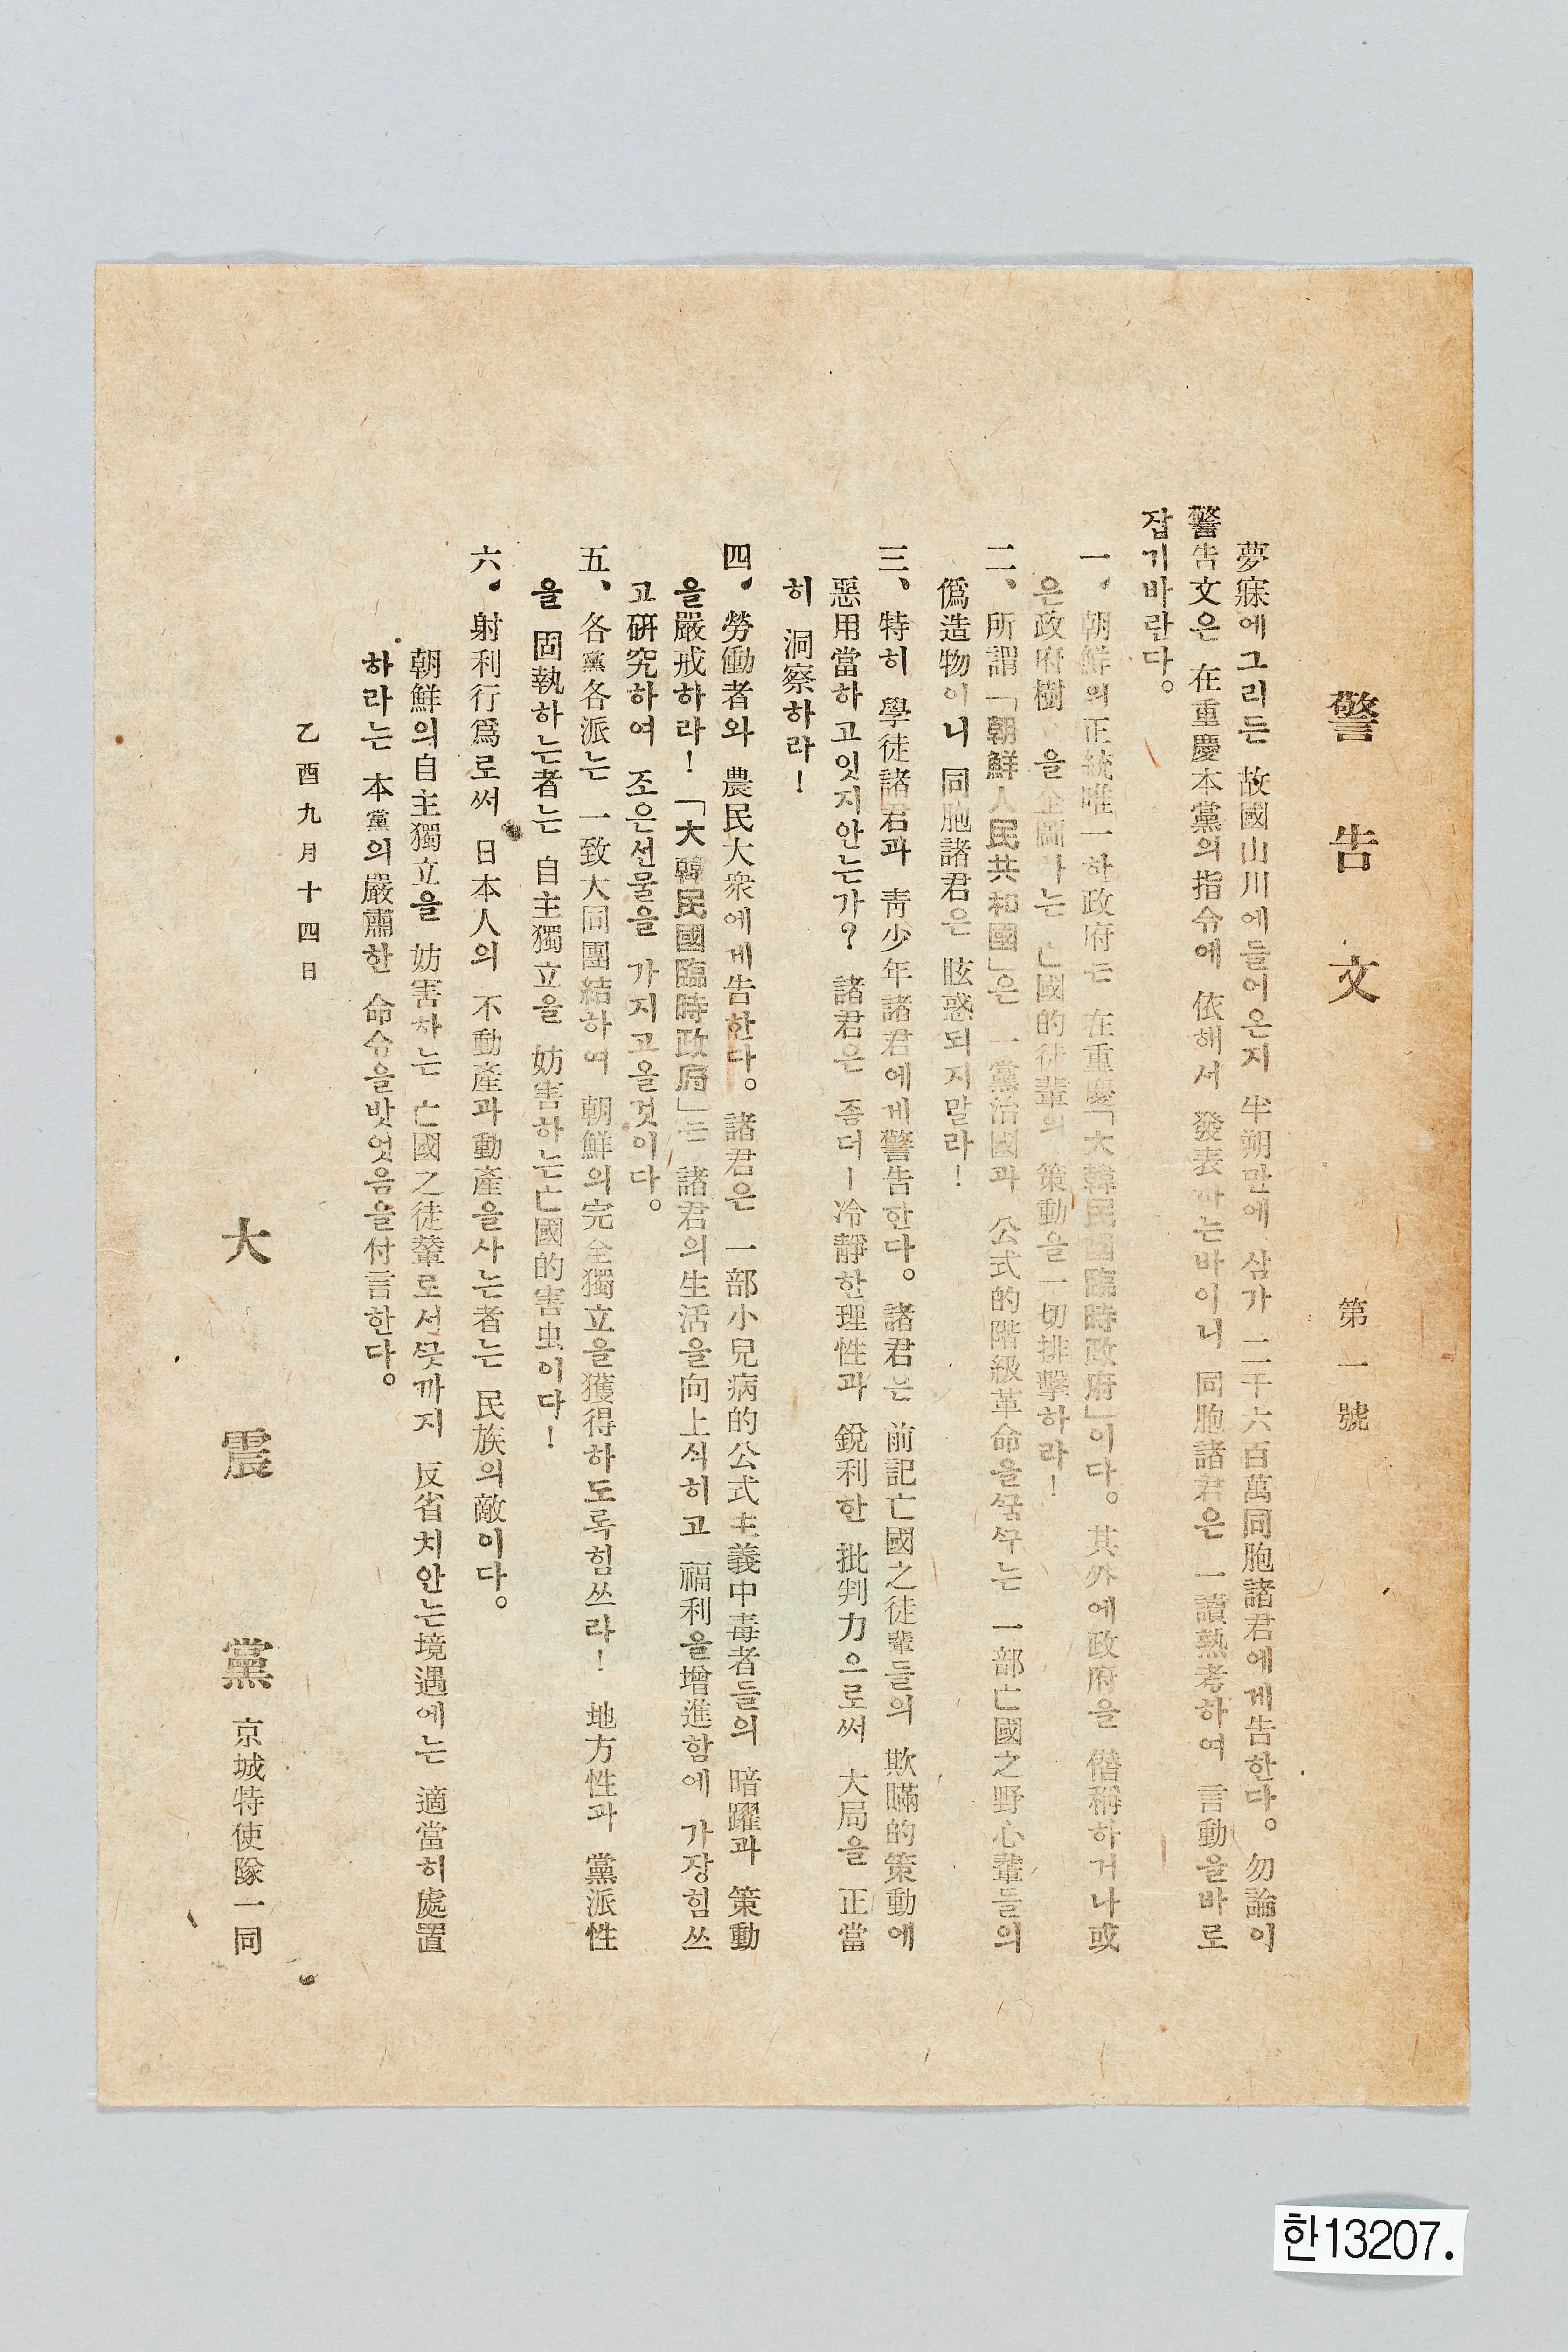 警告文 第一號
夢寐에그리든 故國山川에들어온지 半朔만에 삼가 二千六百萬同胞諸君에게告한다。勿論이
警告文은 在重慶本黨의指令에 依해서 發表하는바이니 同胞諸君은 一讀熟考하여 言動을바로
잡기바란다。
一、朝鮮의正統唯一한政府는 在重慶「大韓民國臨時政府」이다。其外에政府을 僭稱하거나或
은政府樹立을企圖하는 亡國的徒輩의 策動을一切排擊하라!
二、所謂「朝鮮人民共和國」은 一黨治國과 公式的階級革命을꿈꾸는 一部亡國之野心輩들의
僞造物이니 同胞諸君은 眩惑되지말라!
三、特히 學徒諸君과 靑少年諸君에게警告한다。諸君은 前記亡國之徒輩들의 欺瞞的策動에
惡用當하고잇지안는가? 諸君은 좀더ー冷靜한理性과 銳利한 批判力으로써 大局을 正當
히 洞察하라!
四、勞働者와 農民大衆에게告한다。諸君은 一部小兒病的公式主義中毒者들의 暗躍과 策動
을嚴戒하라!「大韓民國臨時政府」는 諸君의生活을向上식히고 福利을增進함에 가장힘쓰
고硏究하여 조은선물을 가지고올것이다。
五、各黨各派는 一致大同團結하여 朝鮮의完全獨立을獲得하도록힘쓰라! 地方性과 黨派性
을 固執하는者는 自主獨立을 妨害하는亡國的害虫이다!
六、射利行爲로써 日本人의 不動產과動產을사는者는 民族의敵이다。
朝鮮의自主獨立을 妨害하는 亡國之徒輩로서끗까지 反省치안는境遇에는 適當히處置
하라는 本黨의嚴肅한 命令을밧엇음을付言한다。
乙酉九月十四日
大震黨 京城特使隊一同
한13207.